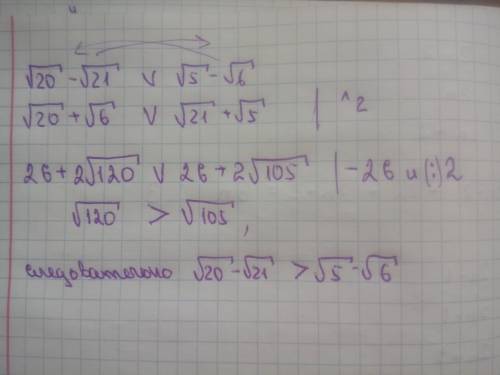 √20 - √21 v √5 - √6
√20 + √6 v √21 + √5 | ^2
26 + 2√120 v 26 + 2√105 | -26 и (:)2
√120 > √105,
следовательно √20 - √21 > √5 - √6